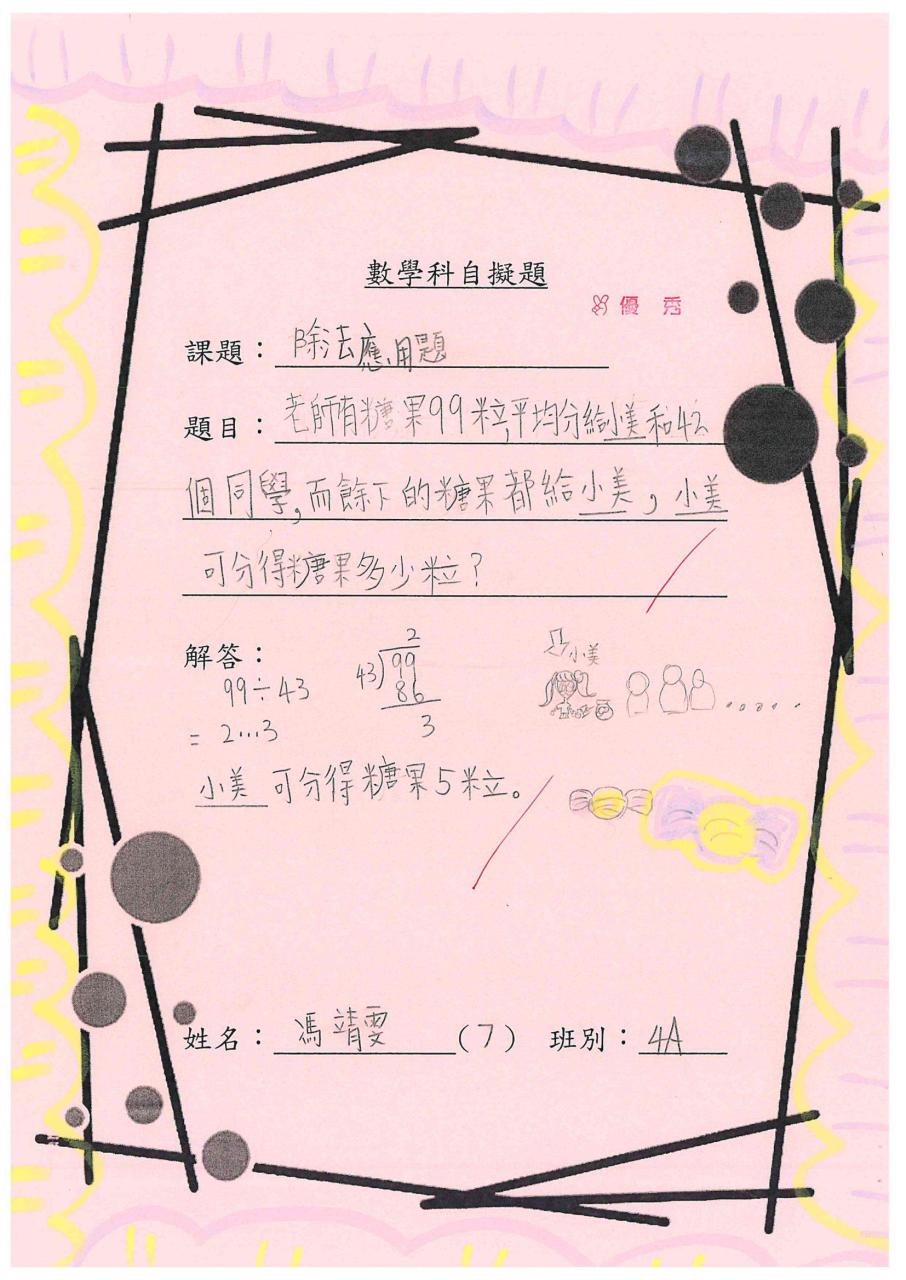 數學科自擬題
優秀
課題：除法應用題
題目：老師有糖果99粒,平均分給小美和42
個同學,而餘下的糖果都給小美，小美
可分得糖果多少粒?
解答：
99÷43
= 2...3
2
43)99
86
3
小美可分得糖果5粒。
小美
姓名：馮靖雯(7) 班別：4A